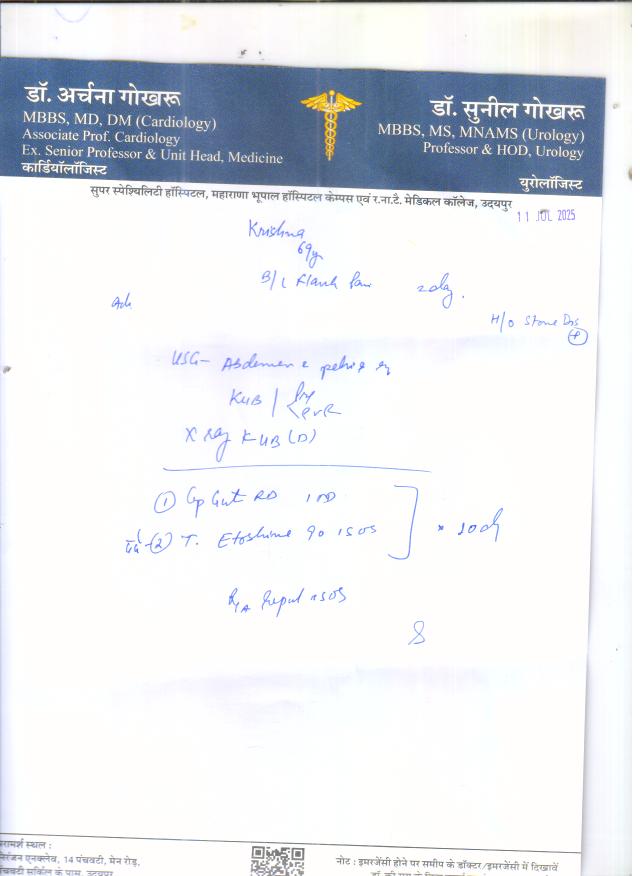 डॉ. अर्चना गोखरू
MBBS, MD, DM (Cardiology)
Associate Prof. Cardiology
Ex. Senior Professor & Unit Head, Medicine
कार्डियॉलॉजिस्ट
डॉ. सुनील गोखरू
MBBS, MS, MNAMS (Urology)
Professor & HOD, Urology
युरोलॉजिस्ट
सुपर स्पेश्यिलिटी हॉस्पिटल, महाराणा भूपाल हॉस्पिटल केम्पस एवं र.ना.टै. मेडिकल कॉलेज, उदयपुर
11 JUL 2025
Krishna
69y
B/L Flank Pain
H/O Stone Dis
+
USG- Abdomen & pelvis
KUB / PVR
X ray KUB (D)
① Cap RD 1 OD
② T. 90 1 SOS
SOS
परामर्श स्थल :
निरंजन एनक्लेव, 14 पंचवटी, मेन रोड़,
पंचवटी सर्किल के पास, उदयपुर
नोट : इमरजेंसी होने पर समीप के डॉक्टर/इमरजेंसी में दिखावें